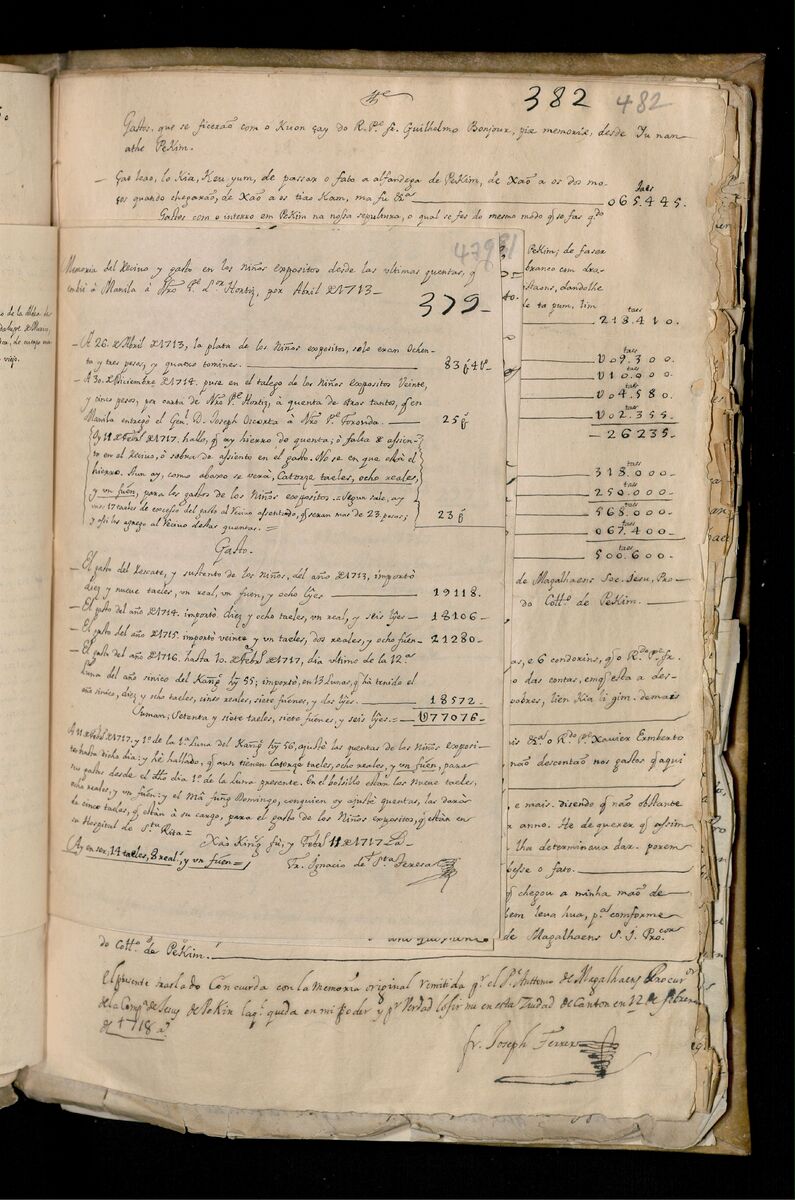 382 482
Gastos, que se ficerão com o Kuon çay do R. Pe fr. Guilhelmo Bonjour, piæ memoriæ, desde Iu nan
athe PeKim.
taes
— Gao leao, lo Kia, Keu yum, de passar o fato a alfandega de PeKim, de Xaõ a os dos mo-
ços quando chegaraõ, de Xaõ a os tiao Kam, ma fu &as 065.445.
Gastos com o interro em PeKim na nossa sepultura, o qual se fes do mesmo modo q̃ se fas qdo
479
Memoria del Recivo y gasto en los Niños expositos desde las ultimas quentas, q̃
embié à Manila à Nro Pe Lor Hortiz, por Abril de 1713—
379—
— A 26. de Abril de 1713, la plata de los Niños expositos, solo eran Ochen-
ta y tres pesos, y quatro tomines. 83 p 4 r
— A 30. de Diciembre de 1714. puse en el talego de los Niños expositos Veinte,
y cinco pesos, por carta de Nro Pe Hortiz, à quenta de otros tantos, q̃ en
Manila entregó el Genl D. Joseph à Nro Pe Foronda. 25 p
Oy 11 de Febro de 1717. hallo, q̃ ay hierro de quenta; ò falta de assien-
to en el Recivo, ò sobra de assiento en el gasto. No se en que està el
hierro. Aun ay, como abaxo se verà, Catorze taeles, ocho reales,
y un fuen, para los gastos de los Niños expositos. = Segun sale, ay
unos 17 taeles de excesso del gasto al Recivo assentado, q̃ seran mas de 23. pesos;
y assi los agrego al Recivo destas quentas. = 23 p
Gasto.
— El gasto del Rescate, y sustento de los Niños, del año de 1713, importò
diez y nueve taeles, un real, un fuen, y ocho lyes 19118.
— El gasto del año de 1714. importò. Diez y ocho taeles, un real, y seis lyes— 18106—
— El gasto del año de 1715. importò veinte y un taeles, dos reales, y ocho fuen— 21280—
— El gasto del año de 1716. hasta 10. de Febro de 1717, dia ultimo de la 12a
luna del año sinico del Kang hy 55; importò, en 13 Lunas, q̃ hà tenido el
año sinico, diez y ocho taeles, cinco reales, siete fuenes, y dos lyes. 18572—
Suman; Setenta y siete taeles, siete fuenes, y seis lyes.= U77076—
A 11 de Febro de 1717. y 1o de la 1a Luna del Kang hy 56, ajustè las quentas de los Niños exposi-
tos hasta dicho dia; y hè hallado, q̃ aun tienen Catorze taeles, ocho reales, y un fuen, para
sus gastos desde el dho dia 1o de la Luna presente. En el bolsillo estàn los nueve taeles,
ocho reales, y un fuen: y el Domingo, con quien oy ajustè quentas, las darà
de cinco taeles, q̃ estàn à su cargo, para el gasto de los Niños expositos, q̃ estàn en
su Hospital de Sta Rita =
Xáo Kíng fù, y Febo 11 de 1717. a—
(Ay en ser, 14 taeles, 8 reals, y un fuen =)
Fr. Ignacio de Sta Teresa
PeKim; de faser
branco com
dandolhe
taes
218.410.
taes
U09.300—
taes
U10.000—
taes
U04.580—
taes
U02.355—
—26235—
taes
318.000—
taes
250.000—
taes
568.000—
taes
067.400—
taes
500.600—
de Magalhaens Soc. Jesu, Pro—
do Collo de PeKim.
as, e 6 condorins, q̃ o Rdo Pe fr.
o das contas, enq̃ esta a des-
pobres, lien Kia li gim. demais
&a! o Rdo Pe Xavier Ermberto
não descontaõ nos gastos q̃ aqui
, e mais. disendo q̃ não obstante
anno. He de querer q̃ assim
lha determinava dar. porem
besse o fato.
q̃ chegou a minha maõ de
bem leva hua, pa comforme
de Magalhaens S. J. Procor
do Collo de PeKim.
El presente traslado Concuerda con la Memoria original remitida pr el Pe Anttonio de Magalhaens Procuror
de la Compa de Jesus de PeKin laql queda en mi Poder y pr Verdad lo firme en esta Ziudad de Canton en 12 de febrero
de 1718 as
fr. Joseph Ferrer